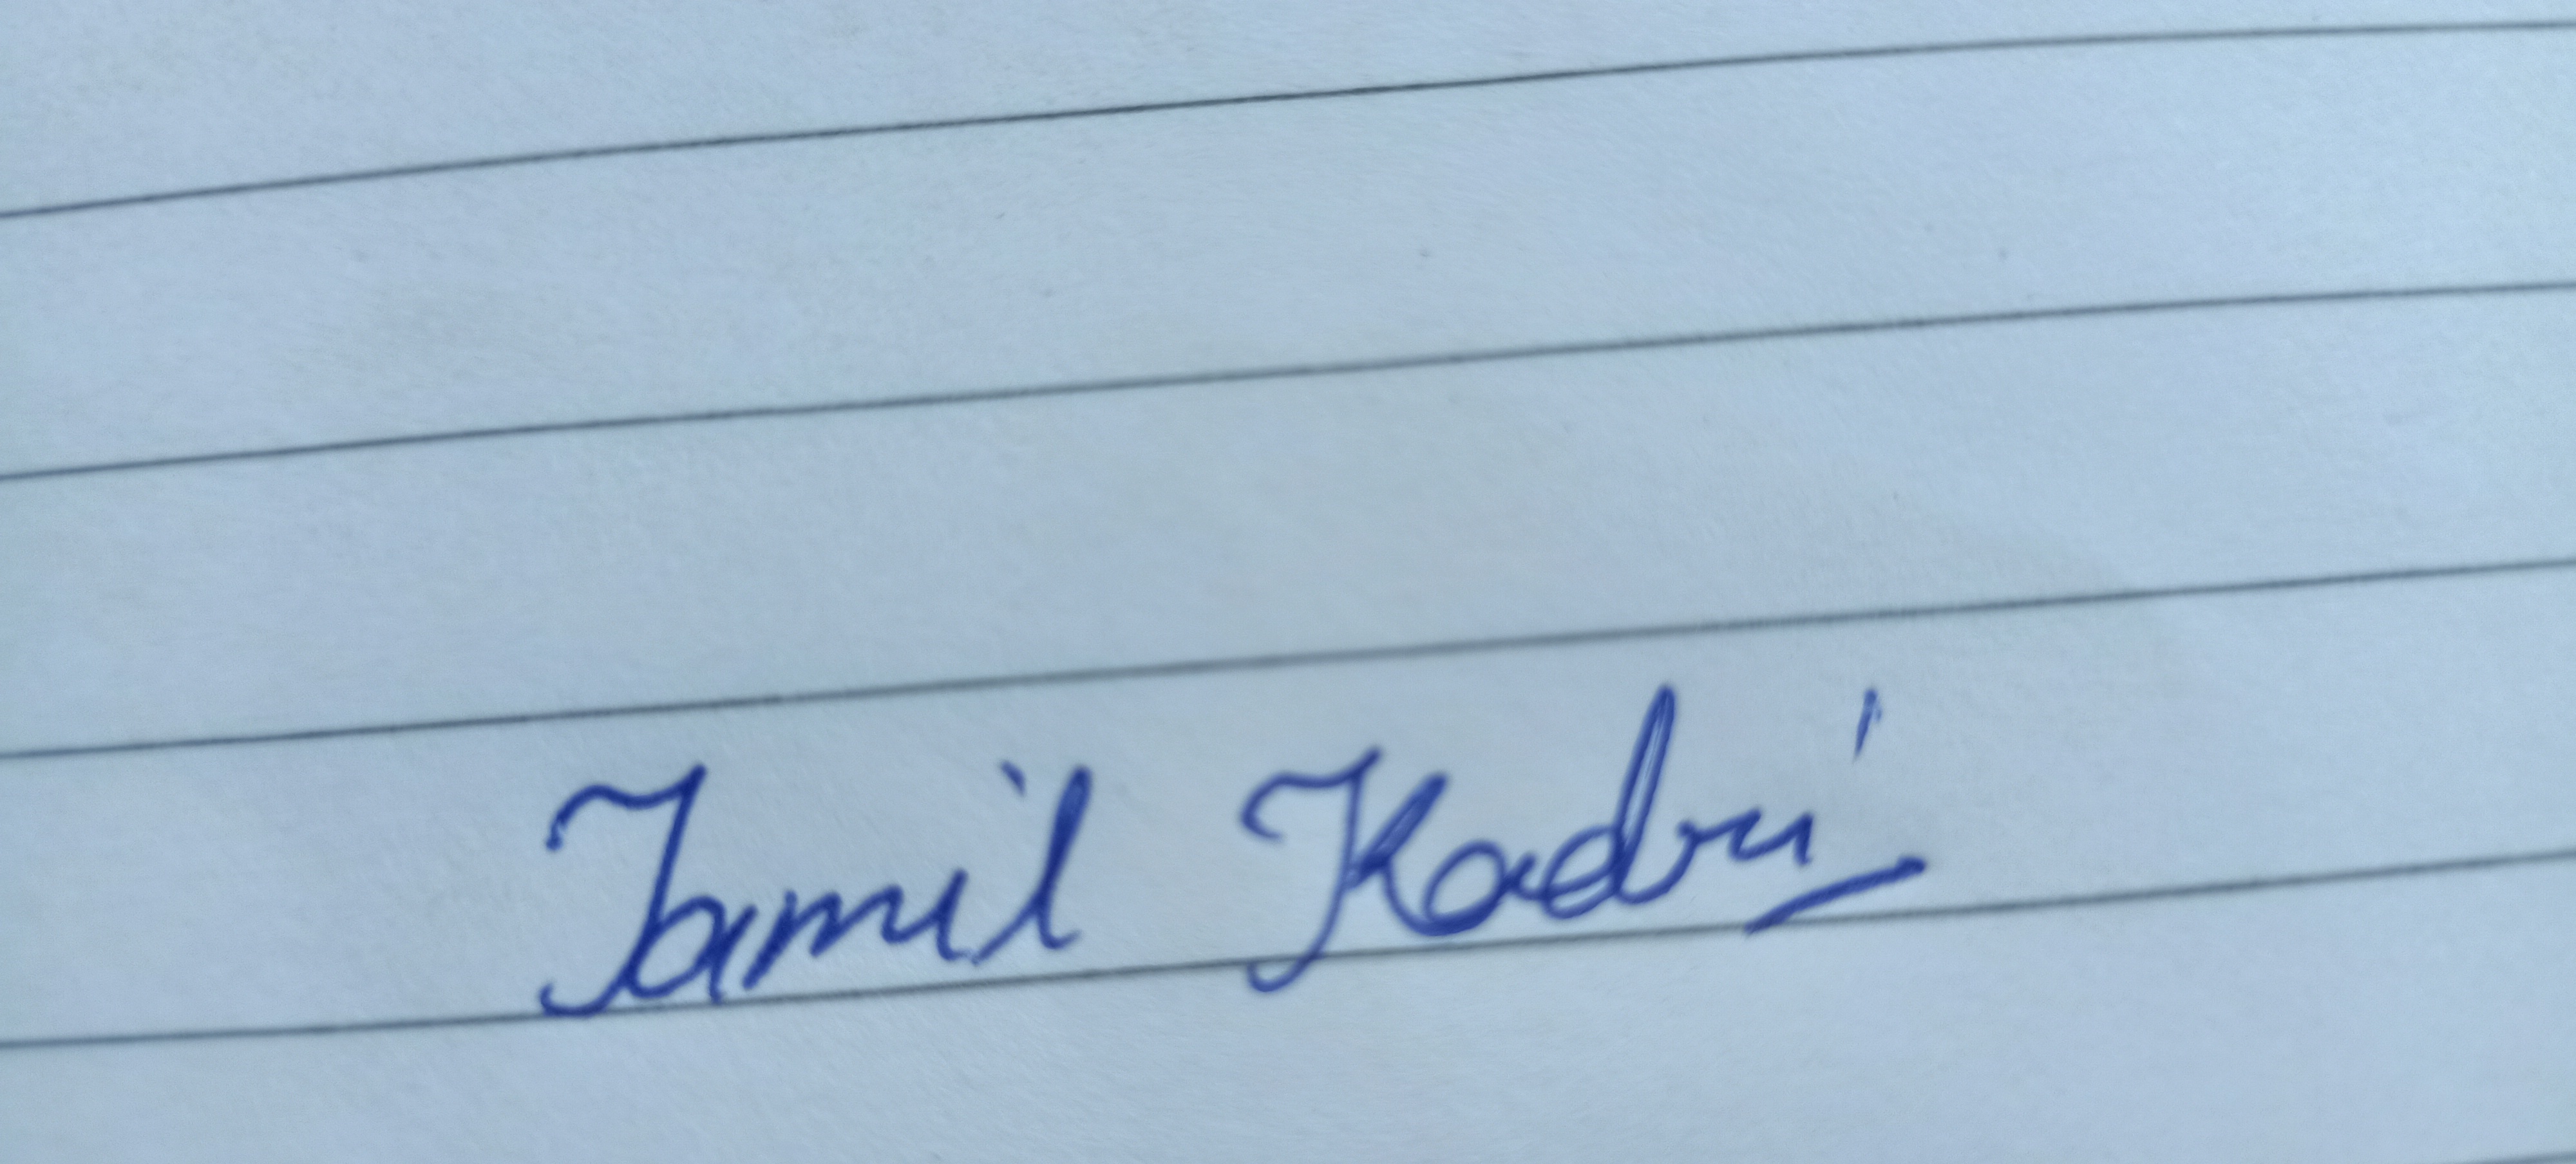 Jamil Kadri